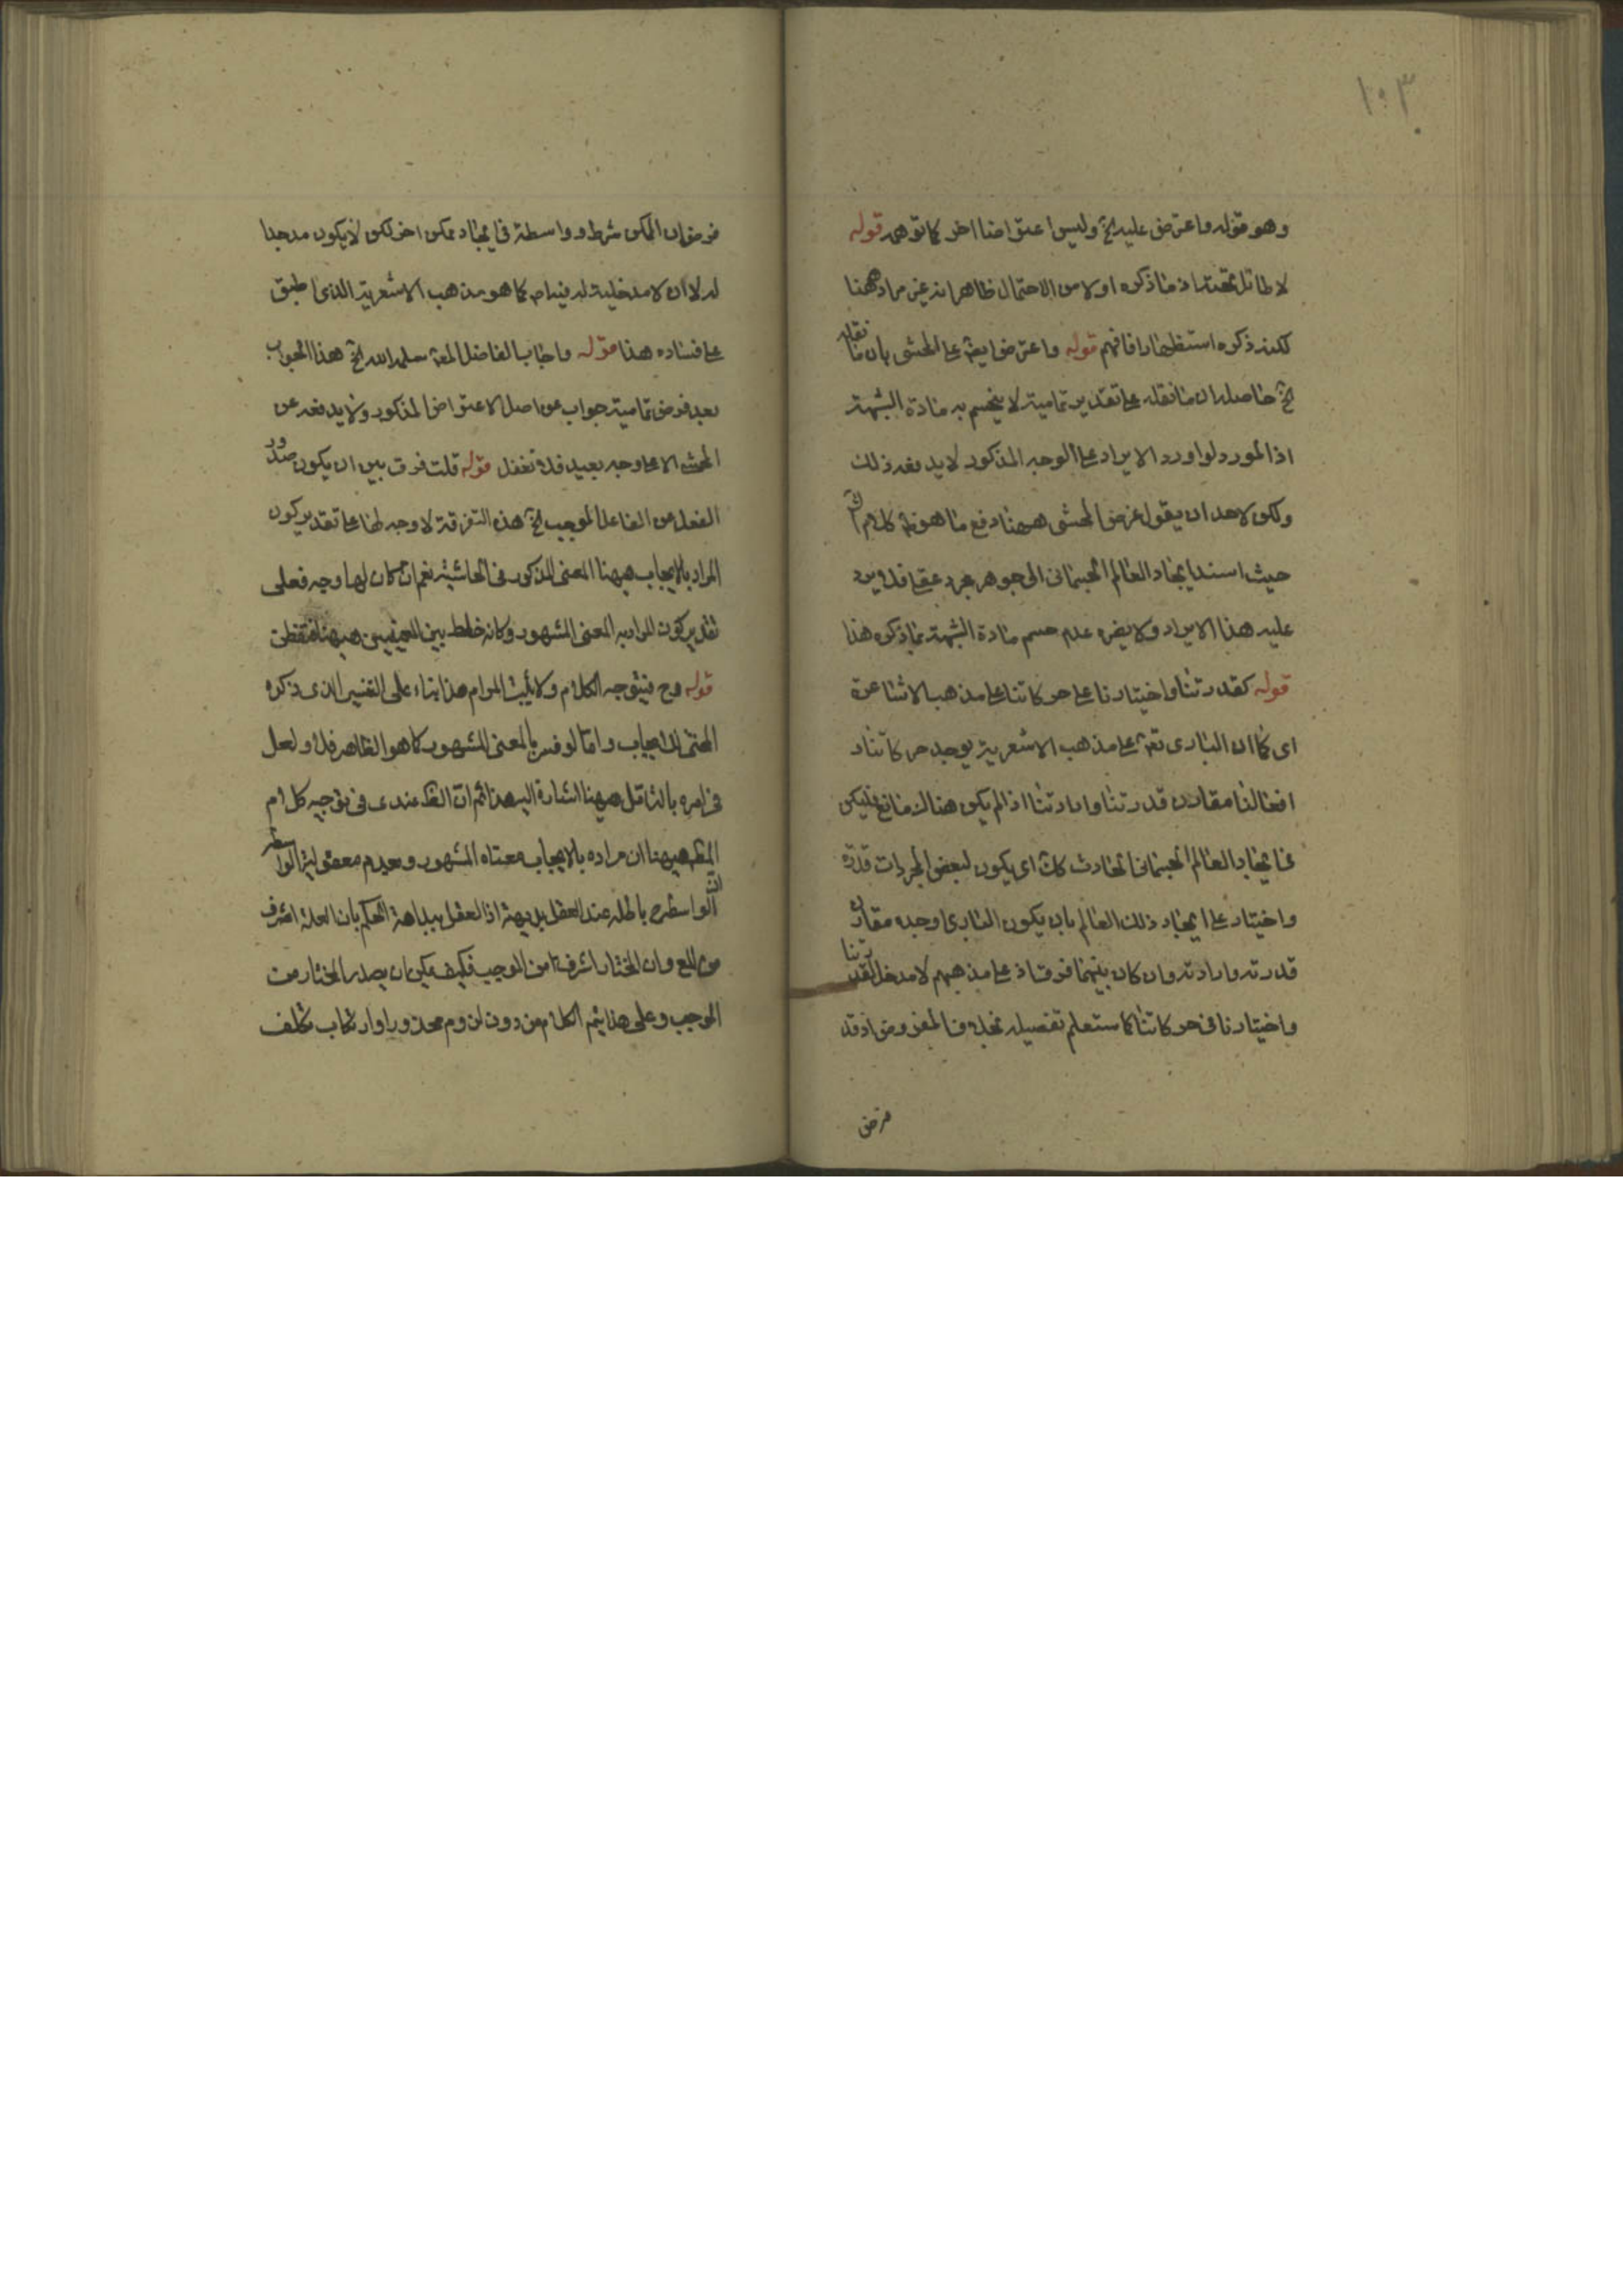 ١٠٣
وهو قوله واعترض عليه الخ وليس اعتراضا اخر كما توهم قوله
لا طائل تحته اذ ما ذكره اولا من الاحتمال ظاهر انه غير مراد ههنا
لكنه ذكره استظهارا فافهم قوله واعترض ايضا على المحشى بان ما نقله
الخ حاصله ان ما نقله على تقدير تماميته لا ينحسم به مادة الشبهة
اذ المورد لو اورد الايراد على الوجه المذكور لا يدفعه ذلك
ولكن لاحد ان يقول غرض المحشى ههنا دفع ما هو فى كلام
حيث اسند ايجاد العالم الجسمانى الى جوهر مجرد عقلى فلا يرد
عليه هذا الايراد ولا يضره عدم حسم مادة الشبهة بما ذكره هذا
قوله كقدرتنا واختيارنا على حركاتنا على مذهب الاشاعرة
اى كما ان البارى تعم على مذهب الاشعرية يوجد حركاتنا و
افعالنا مقارن قدرتنا وارادتنا اذا لم يكن هناك مانع فليكن
فى ايجاد العالم الجسمانى الحادث كك اى يكون لبعض المجردات قدرة
واختيار على ايجاد ذلك العالم بان يكون البارى اوجده مقارن
قدرته وارادته وان كان بينهما فرق اذ على مذهبهم لا مدخل لقدرتنا
واختيارنا فى حركاتنا كما ستعلم تفصيله بخلاف المفروض اذ قد
فرض
فرض ان الممكن شرط وواسطة فى ايجاد ممكن اخر لكن لا يكون موجدا
له لا ان لا مدخلية له فيه اصلا كما هو مذهب الاشعرية الذى اطبق
على فساده هذا قوله واجاب الفاضل المعة سلمه الله الخ هذا الجواب
بعد فرض تماميته جواب عن اصل الاعتراض المذكور ولا يدفعه عن
المحشى الا على وجه بعيد فلا تغفل قوله قلت فرق بين ان يكون صدور
الفعل عن الفاعل الموجب الخ هذه التفرقة لا وجه لها على تقدير كون
المراد بالايجاب ههنا المعنى المذكور فى الحاشية نعم ان كان لها وجه فعلى
تقدير كون المراد به المعنى المشهور وكانه خلط بين المعنيين ههنا فتفطن
قوله وح فيتوجه الكلام ولا يثبت المرام هذا بناء على التفسير الذى ذكره
المحشى للايجاب واما لو فسر بالمعنى المشهور كما هو الظاهر فلا ولعل
فى امره بالتامل ههنا اشارة اليه هذا ثم ان الظ عندى فى توجيه كلام
المظ ههنا ان مراده بالايجاب معناه المشهور وبعدم معقولية الواسطة
ان الواسطة باطلة عند العقل بديهة اذ العقل ببداهة الحكم بان العلة اشرف
من المع وان المختار اشرف من الموجب فكيف يمكن ان يصدر المختار من
الموجب وعلى هذا يتم الكلام من دون لزوم محذور او ارتكاب تكلف